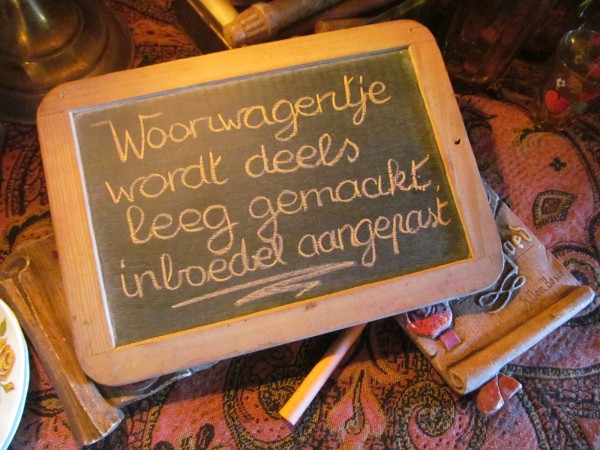 Woonwagentje
wordt deels
leeg gemaakt,
inboedel aangepast